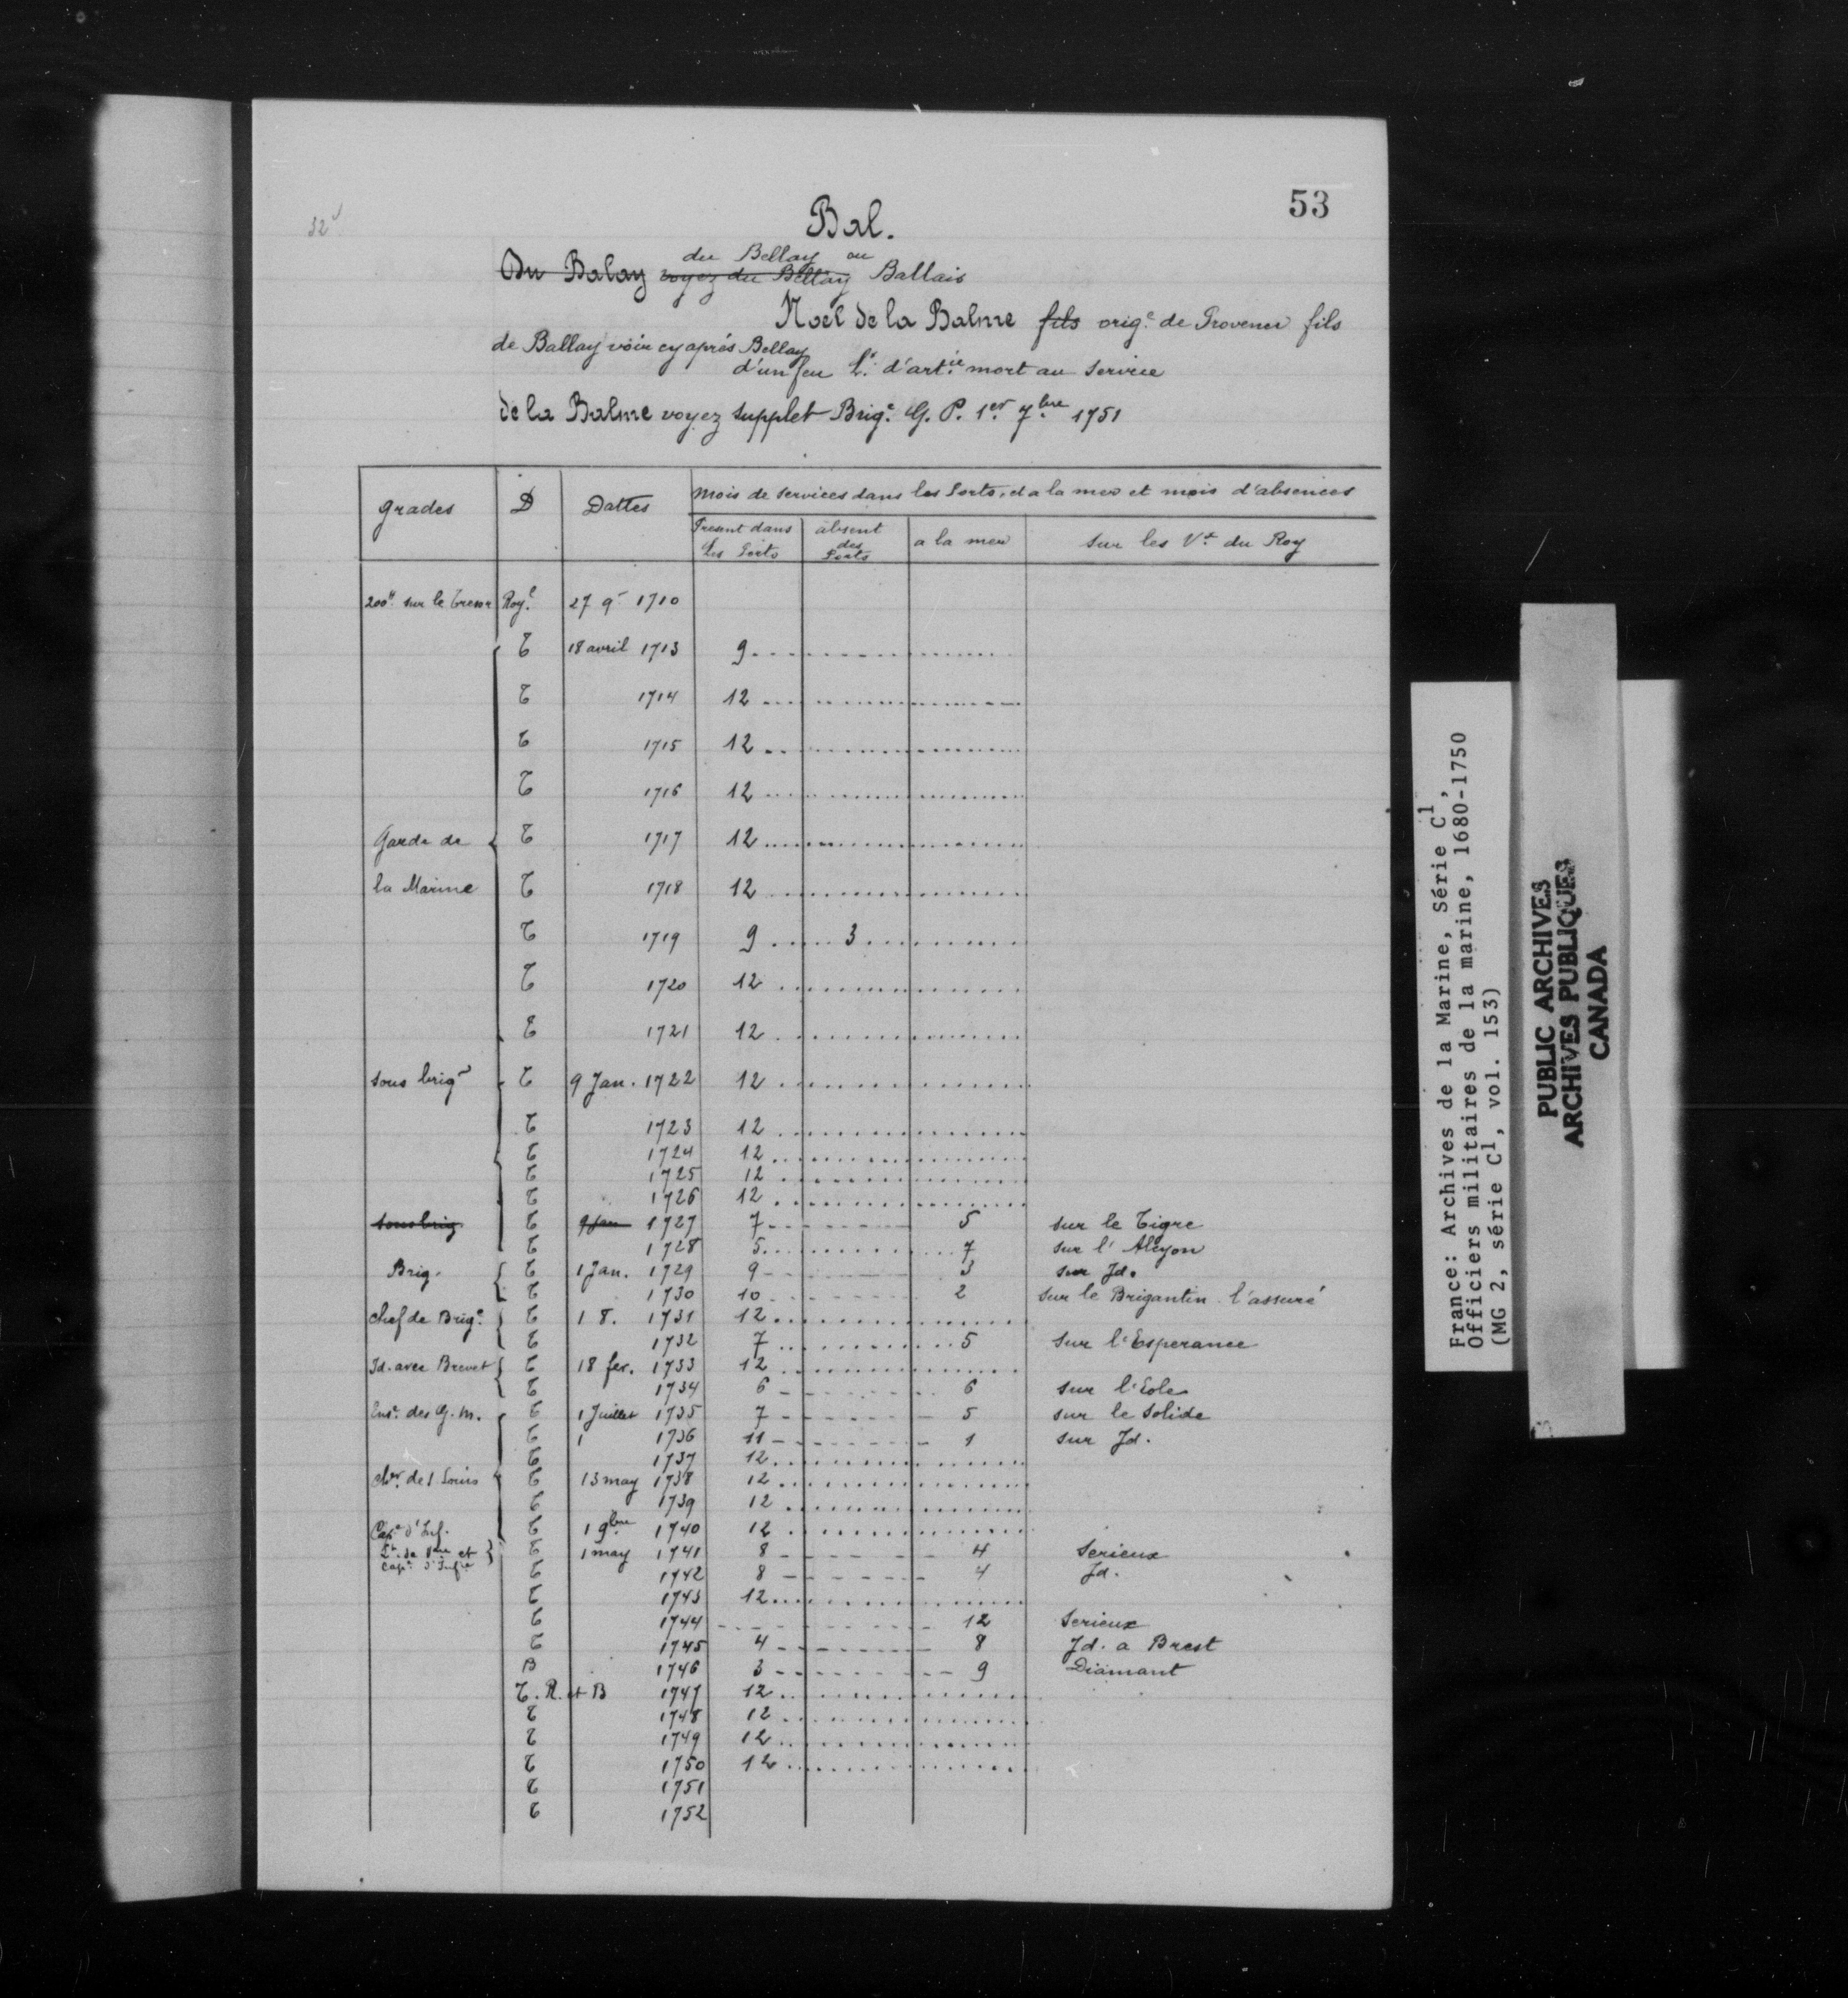 53
Bal.
du Bellay ou
Du Balay voyez du Bellay Ballais
Noel de la Balme fils orig.e de Provence fils
de Ballay voir cy aprés Bellay
d'un feu L.t d'art.ie mort au service
de la Balme voyez supplet Brig.e G. P. 1er 7bre 1751
grades D Dattes Mois de services dans les Ports, et a la mer et mois d'absences
Present dans les Ports absent des Ports a la mer sur les Vx du Roy
200# sur le tresor Roy.l 27 9r 1710
T 18 avril 1713 9
T 1714 12
T 1715 12
T 1716 12
Garde de T 1717 12
la Marine T 1718 12
T 1719 9 3
T 1720 12
T 1721 12
sous brigr T 9 Jan. 1722 12
T 1723 12
T 1724 12
T 1725 12
T 1726 12
sous brig T 9 Jan 1727 7 5 sur le Tigre
T 1728 5 7 sur l'Alcyon
Brig. T 1 Jan. 1729 9 3 sur Jd.
T 1730 10 2 sur le Brigantin l'assuré
chef de Brig.e T 1 8. 1731 12
T 1732 7 5 sur l'Esperance
Jd. avec Brevet T 18 fev. 1733 12
T 1734 6 6 sur l'Eole
Ens.e des G. M. T 1 Juillet 1735 7 5 sur le Solide
T 1 1736 11 1 sur Jd.
T 1737 12
chr. de S. Louis T 13 may 1738 12
T 1739 12
Cap.e d'Inf. T 1 9bre 1740 12
Lt. de Vau et T 1 may 1741 8 4 Serieux
cap.e d'Infie T 1742 8 4 Jd.
T 1743 12
T 1744 12 Serieux
T 1745 4 8 Jd. a Brest
B 1746 3 9 Diamant
T. R. et B 1747 12
T 1748 12
T 1749 12
T 1750 12
T 1751
T 1752
France: Archives de la Marine, Série C1,
Officiers militaires de la marine, 1680-1750
(MG 2, série C1, vol. 153)
PUBLIC ARCHIVES
ARCHIVES PUBLIQUES
CANADA